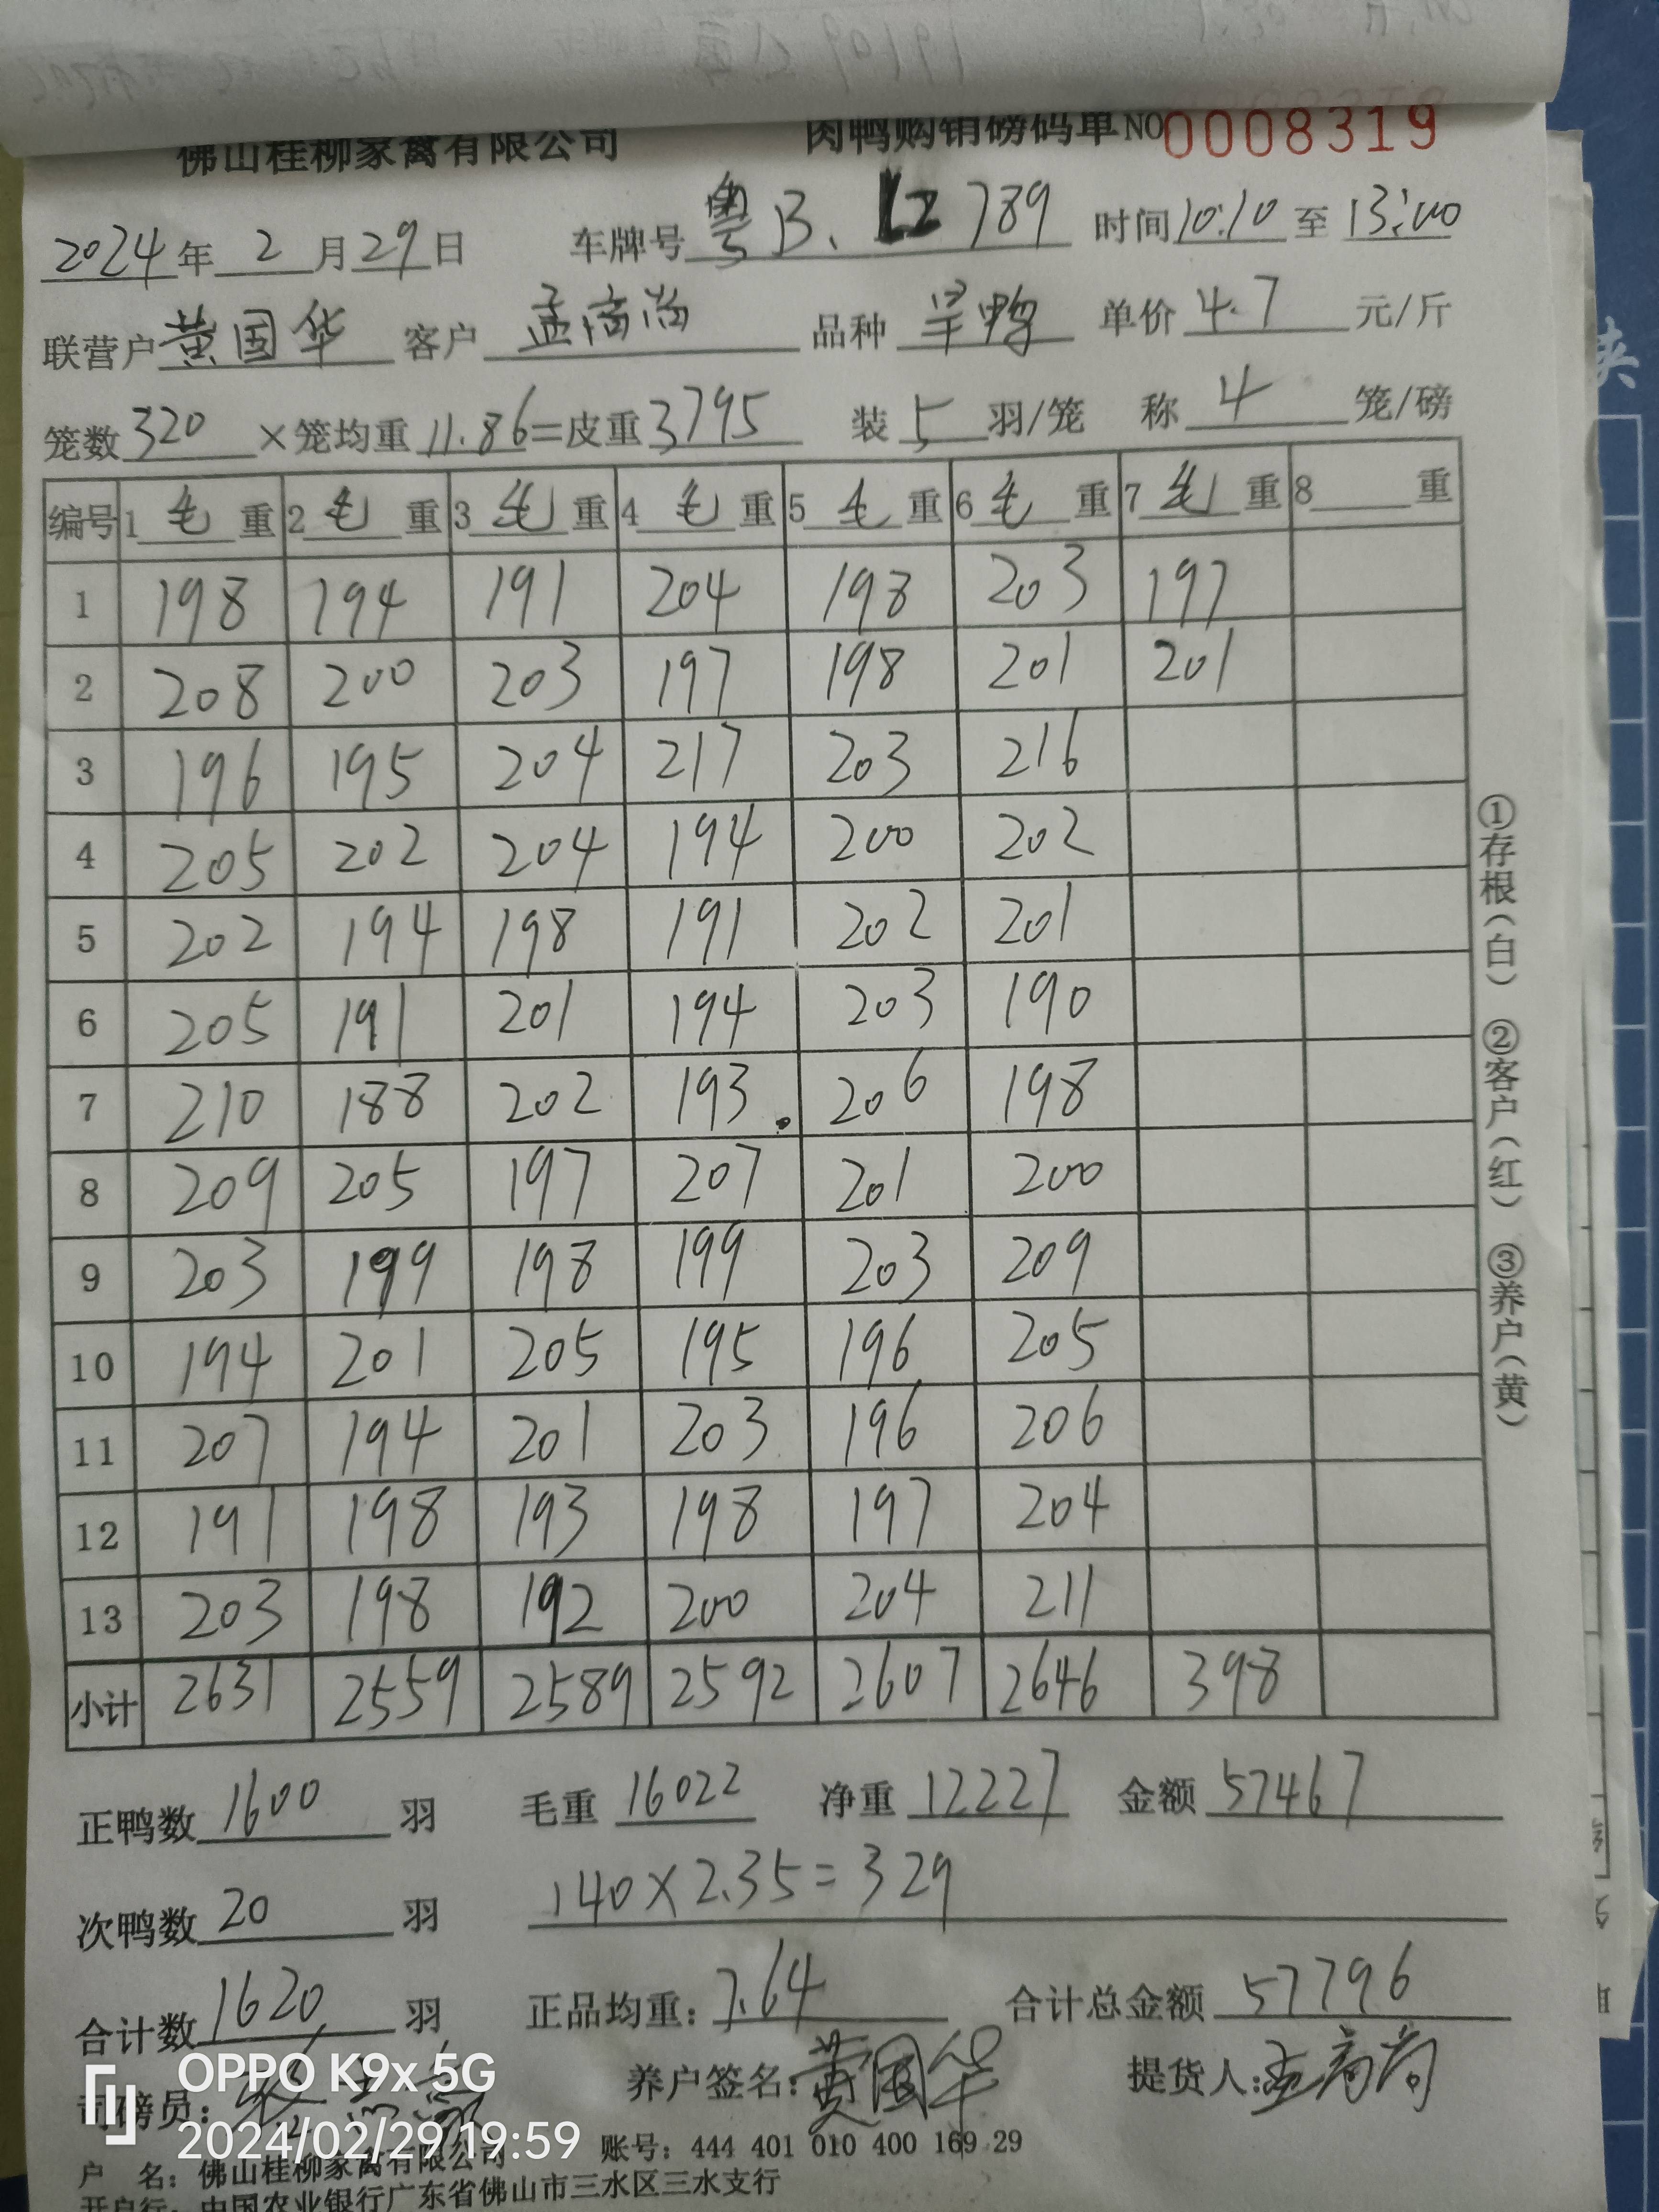 佛山桂柳家禽有限公司 肉鸭购销磅码单 NO 0008319
2024年2月29日 车牌号 粤B. 789 时间10:10至13:00
联营户 黄国华 客户 孟高尚 品种 单价 4.7 元/斤
笼数 320 ×笼均重 11.86=皮重 3795 装 5 羽/笼 称 4 笼/磅
编号 1 毛 重 2 毛 重 3 毛 重 4 毛 重 5 毛 重 6 毛 重 7 毛 重 8 重
1 198 194 191 204 198 203 197
2 208 200 203 197 198 201 201
3 196 195 204 217 203 216
4 205 202 204 194 200 202
5 202 194 198 191 202 201
6 205 191 201 194 203 190
7 210 188 202 193. 206 198
8 209 205 197 207 201 200
9 203 199 198 199 203 209
10 194 201 205 195 196 205
11 207 194 201 203 196 206
12 191 198 193 198 197 204
13 203 198 192 200 204 211
小计 2631 2559 2589 2592 2607 2646 398
①存根(白) ②客户(红) ③养户(黄)
正鸭数 1600 羽 毛重 16022 净重 12227 金额 57467
次鸭数 20 羽 140×2.35=329
合计数 1620 羽 正品均重: 7.64 合计总金额 57796
司磅员: 养户签名: 黄国华 提货人: 孟高尚
OPPO K9x 5G
2024/02/29 19:59
账号: 444 401 010 400 169 29
户 名: 佛山桂柳家禽有限公司
开户行: 中国农业银行广东省佛山市三水区三水支行